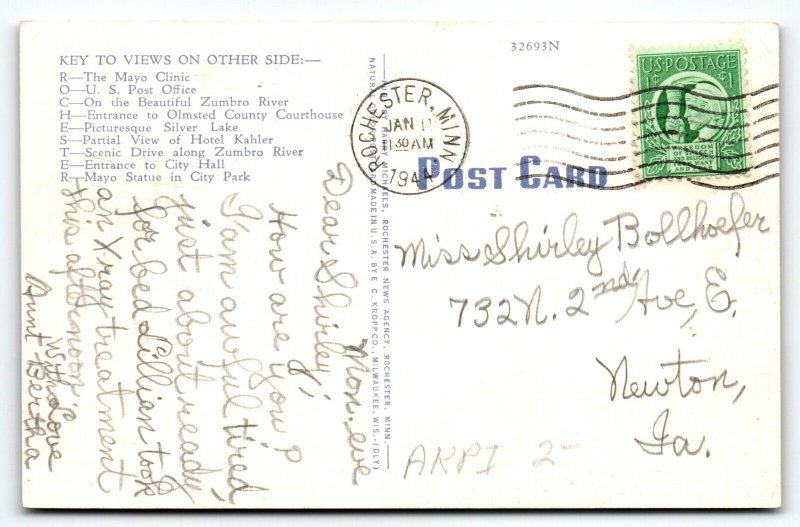 32693N
KEY TO VIEWS ON OTHER SIDE:—
R—The Mayo Clinic
O—U. S. Post Office
C—On the Beautiful Zumbro River
H—Entrance to Olmsted County Courthouse
E—Picturesque Silver Lake
S—Partial View of Hotel Kahler
T—Scenic Drive along Zumbro River
E—Entrance to City Hall
R—Mayo Statue in City Park
MICHAELS, ROCHESTER NEWS AGENCY, ROCHESTER, MINN.
MADE IN U.S.A. BY E. C. KROPP CO., MILWAUKEE, WIS.-(DLY)
ROCHESTER, MINN.
JAN
30 AM
1944
U.S. POSTAGE
1¢ ¢1
FREEDOM
POST CARD
Mon. eve
Dear Shirley;
How are you?
I'am awful tired,
just about ready
for bed Lillian took
an Xray treatment
this afternoon,
With Love
Aunt Bertha
Miss Shirley Bollhoefer
732 N. 2nd. Ave, E.
Newton,
Ia.
AKPI 2-